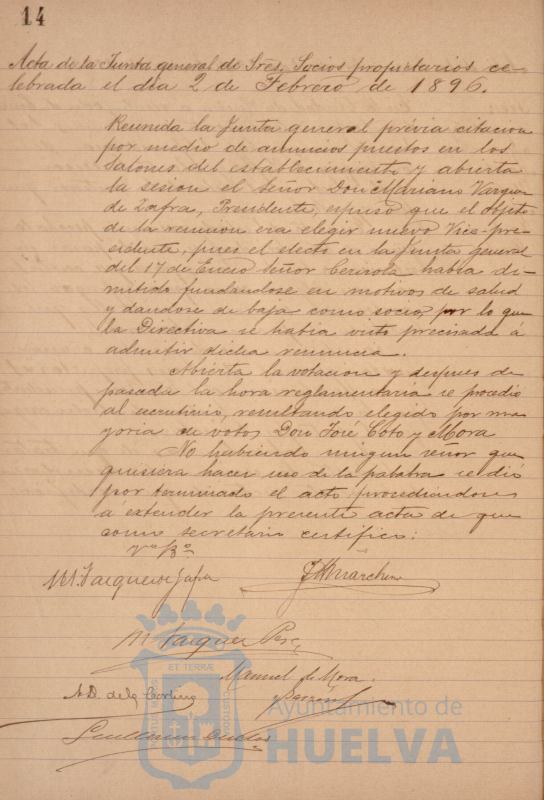 14
Acta de la Junta general de Sres. Socios propietarios ce-
lebrada el dia 2 de Febrero de 1896.
Reunida la Junta general prévia citacion
por medio de anuncios puestos en los
Salones del establecimiento y abierta
la sesion el Señor Don Mariano Vazquez
de Zafra, Presidente, espuso que el objeto
de la reunion era elegir nuevo Vice-pre-
sidente, pues el electo en la Junta general
del 17 de Enero Señor Cerisola habia di-
mitido fundandose en motivos de salud
y dandose de baja como socio, por lo que
la Directiva se habia visto precisada á
admitir dicha renuncia.
Abierta la votacion y despues de
pasada la hora reglamentaria se procedio
al escrutinio, resultando elegido por ma
yoria de votos Don José Coto y Mora
No habiendo ningun señor que
quisiera hacer uso de la palabra se dió
por terminado el acto procediendose
a extender la presente acta de que
como secretario certifico:
Vº Bº
M. Vazquez de Zafra
M. Vazquez Perez
Manuel de Mora
A. D. de la Cortina
Guillermo
Ayuntamiento de
HUELVA